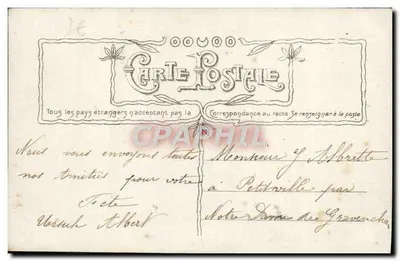 CARTE POSTALE
Tous les pays étrangers n'acceptent pas la Correspondance au recto. Se renseigner à la poste
Nous vous envoyons toutes
nos Amitiés pour votre
Fete
Albert
Monsieur J Albrette
a Petitville par
Notre Dame de Gravenchon